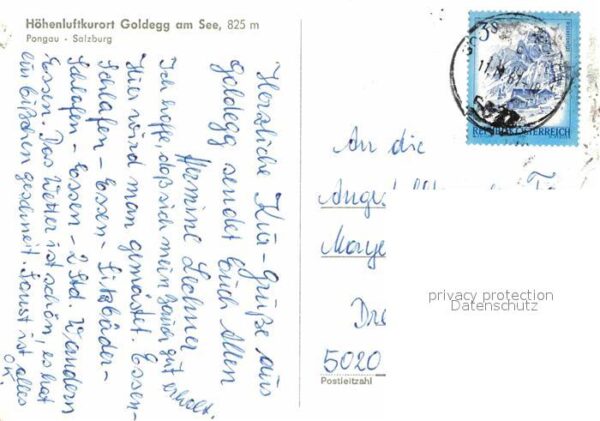 Höhenluftkurort Goldegg am See, 825 m
Pongau - Salzburg
Herzliche Kur-Grüße aus
Goldegg sendet Euch Allen
Hermine Lechner
Ich hoffe, daß sich mein gut erholt.
Hier wird man gemästet. Essen-
Schlafen - Essen - Sitzbäder -
Schlafen - Essen - 2 Std Wandern
Essen. Das Wetter ist schön, es hat
ein bißchen geschneit. Sonst ist alles
OK.
3s
REPUBLIK ÖSTERREICH
An die
5020
Postleitzahl
privacy protection
Datenschutz